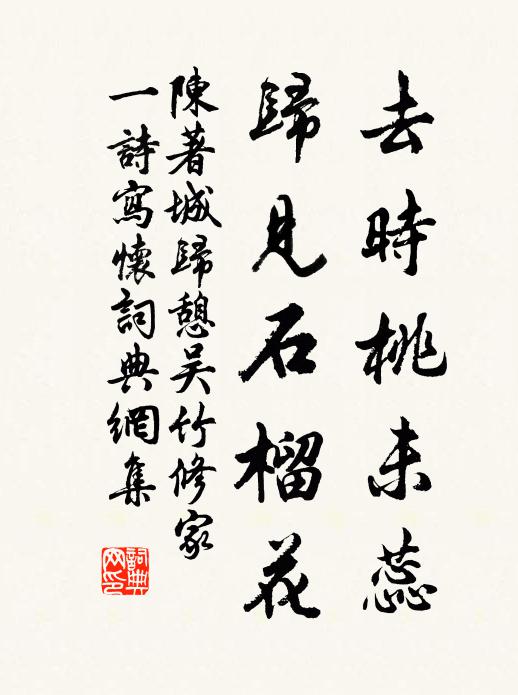 去時桃未蕊
歸見石榴花
陳著城歸憩吴竹修家
一詩寫懷詞典網集
詞典
网印